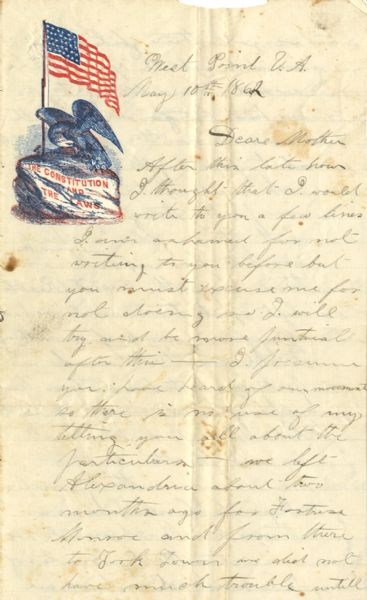 West Point V.A.
May 10th 1862
THE CONSTITUTION
AND
THE LAWS
Deare Mother
After this late hour
I thought that I would
write to you a few lines
I am ashamed for not
writing to you before but
you must excuse me for
not doeing so I will
try and be more puntial
after this — I presume
you have heard of our movement
so there is no use of my
telling you all about the
particulars — we left
Alexandria about two
months ago for Fortress
Monroe and from there
to York Town we did not
have much trouble untill